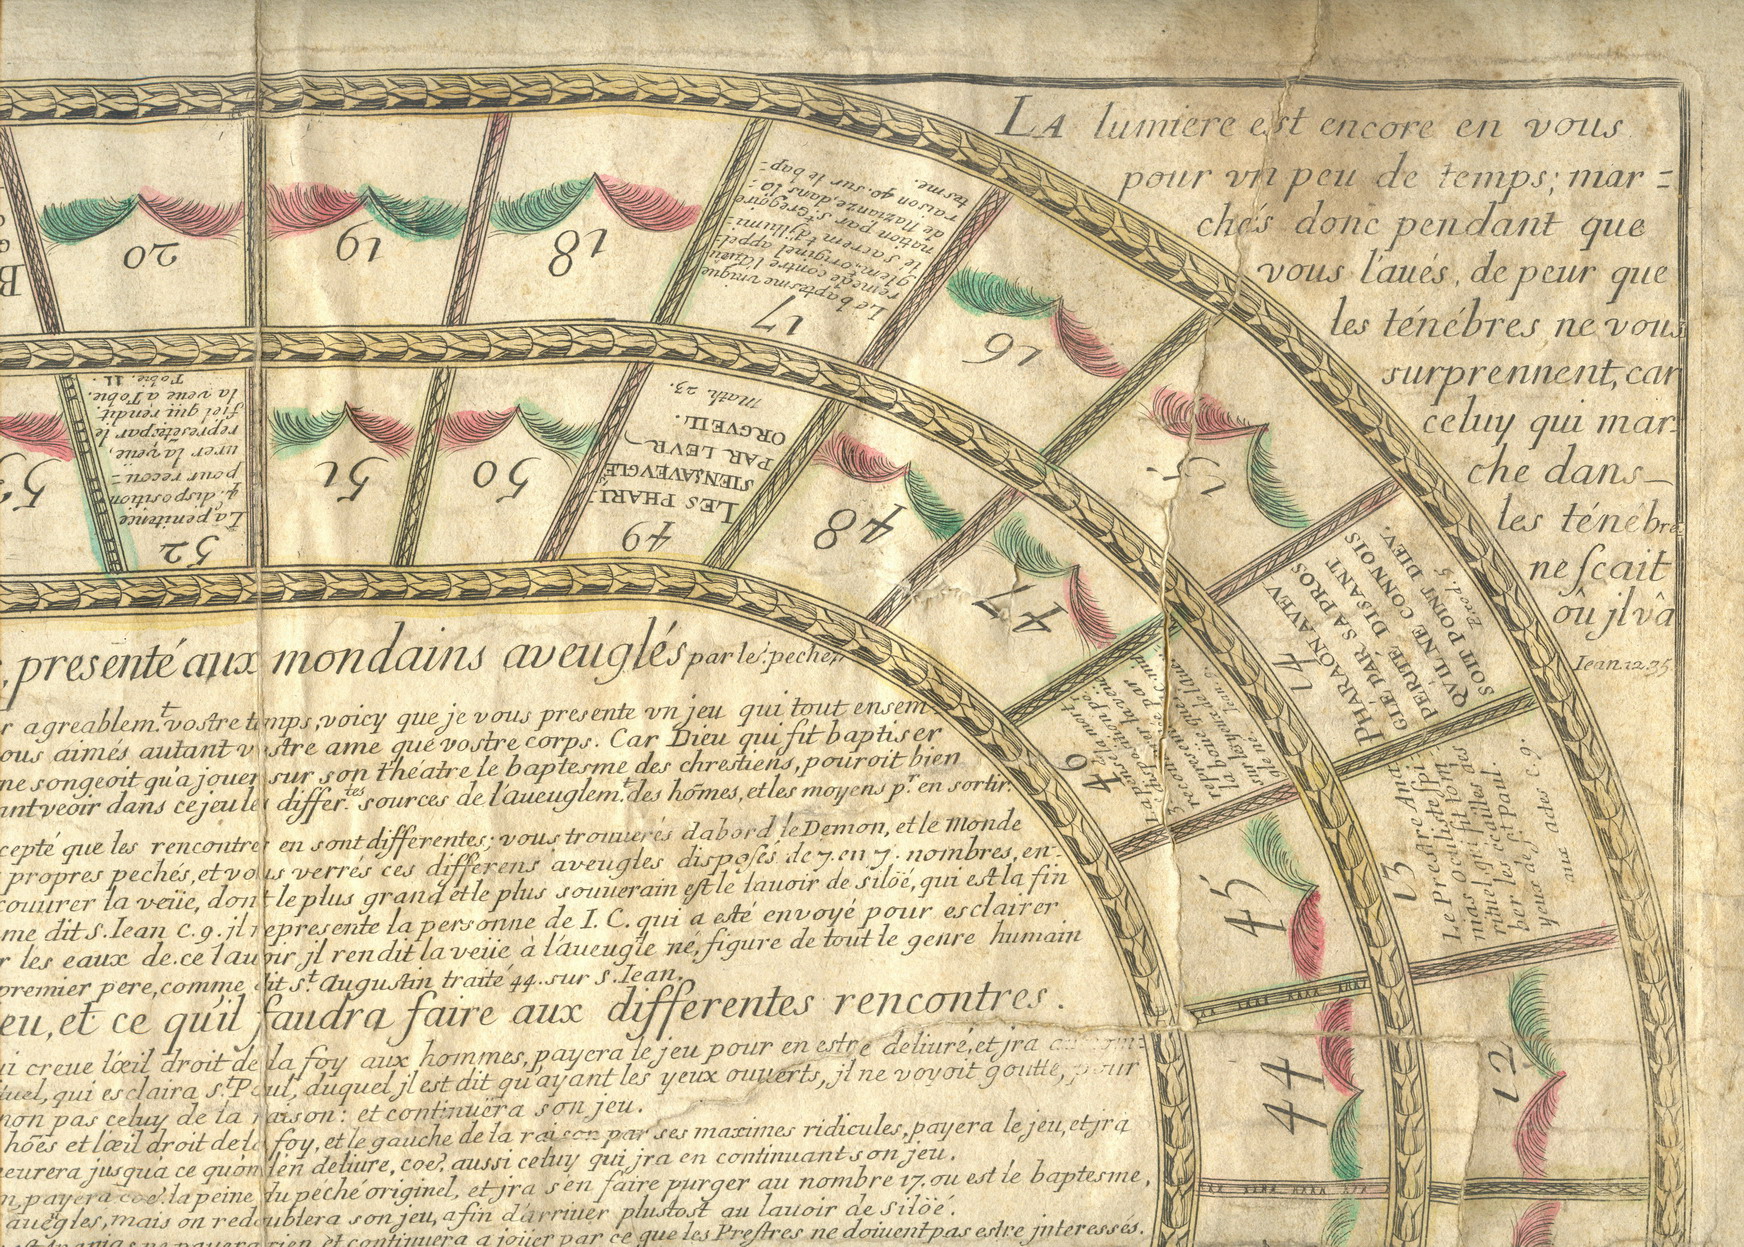 LA lumiere est encore en vous
pour vn peu de temps; mar=
chés donc pendant que
vous l'aués, de peur que
les ténébres ne vous
surprennent, car
celuy qui mar:
che dans
les ténébre
ne sçait
où jl va
Iean 12.35.
20
19
18
17
Le baptesme vnique
remede contre l'aueu
glem. originel appel-
lé sacrem. t d'jllumi
nation par S. Gregoire
de Nazianze, dans l'o
raison 40. sur le bap-
tesme.
16
15
14
PHARAON AVEV
GLE PAR SA PROS
PERITÉ, DISANT
QV'IL NE CONNOIS
SOIT POINT DIEV.
Exod. 5
13
Le Prestre Ana
nias oculiste spi
rituel qui fit tom
ber les écailles des
yeux de St Paul.
aux actes c. 9.
12
52
La penitence
4. disposition
pour recou=
urer la veüe,
represẽtée par le
fiel qui rendit
la veüe a Tobie.
Tobie. 11.
51
50
49
LES PHARI:
SIENS AVEVGLÉS
PAR LEVR
ORGVEIL.
Math. 23.
48
47
46
45
44
presenté aux mondains aveuglés par les pechez
agreablem.t vostre temps, voicy que je vous presente vn jeu qui tout ensem-
ous aimés autant vostre ame que vostre corps. Car Dieu qui fit baptiser
ne songeoit qu'a jouer sur son théatre le baptesme des chrestiens, pouroit bien
ant veoir dans ce jeu les differ.tes sources de l'aueuglem.t des hõmes, et les moyens p.r en sortir.
cepté que les rencontres en sont différentes; vous trouuerés d'abord le Demon, et le Monde
propres pechés, et vous verrés ces differens aveugles disposés de 7. en 7. nombres, en-
couurer la veüe, dont le plus grand et le plus souuerain est le lauoir de siloë, qui est la fin
me dit S. Iean c. 9. jl represente la personne de I. C. qui a esté envoyé pour esclairer
r les eaux de ce lauoir jl rendit la veüe à l'aueugle né, figure de tout le genre humain
premier pere, comme dit S.t Augustin traité 44. sur S. Iean.
eu, et ce qu'il faudra faire aux differentes rencontres.
ui creue l'œil droit de la foy aux hommes, payera le jeu pour en estre deliuré, et jra au
tuel, qui esclaira S.t Paul, duquel jl est dit qu'ayant les yeux ouuerts, jl ne voyoit goutte, pour
non pas celuy de la raison: et continuëra son jeu.
hões et l'œil droit de la foy, et le gauche de la raison par ses maximes ridicules, payera le jeu, et jra
eurera jusqua ce quon l'en deliure, coẽ, aussi celuy qui jra en continuant son jeu.
n, payera coẽ. la peine du péché originel, et jra s'en faire purger au nombre 17. ou est le baptesme,
auegles, mais on redoublera son jeu, afin d'arriuer plustost au lauoir de Siloé.
Ananias ne payera rien, et continuera a joüer par ce que les Prestres ne doiuent pas estre jnteressés.